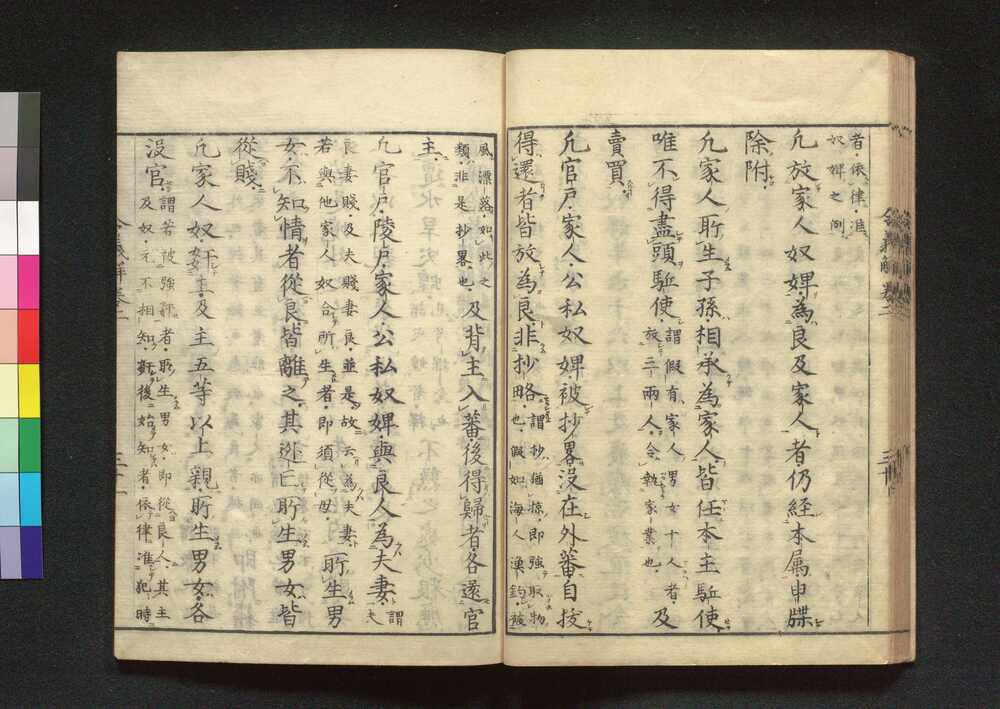 者・依律・准
奴婢之例
凡放家人奴婢為良及家人者仍経本属申牒
除附
凡家人所生子孫相承為家人皆任本主駈使
唯不得盡頭駈使謂假有家人男女十人者・放三両人令執家業也及
賣買
凡官戸家人公私奴婢被抄畧没在外蕃自拔
得還者皆放為良非抄略謂抄猶掠即強取物也假如海人漁釣被
風漂落如此之類非是抄畧也及背主入蕃後得歸者各還官
主
凡官戸陵戸家人公私奴婢與良人為夫妻謂夫
良妻賤及夫賤妻良並是故云為夫妻若與他家人奴合所生者即須從母所生男
女不知情者從良皆離之其逃亡所生男女皆
從賤
凡家人奴姧主及主五等以上親所生男女各
没官謂若被強姧者所生男女即從良人其主及奴元不相知姧後始知者依律准犯時
令義解巻二